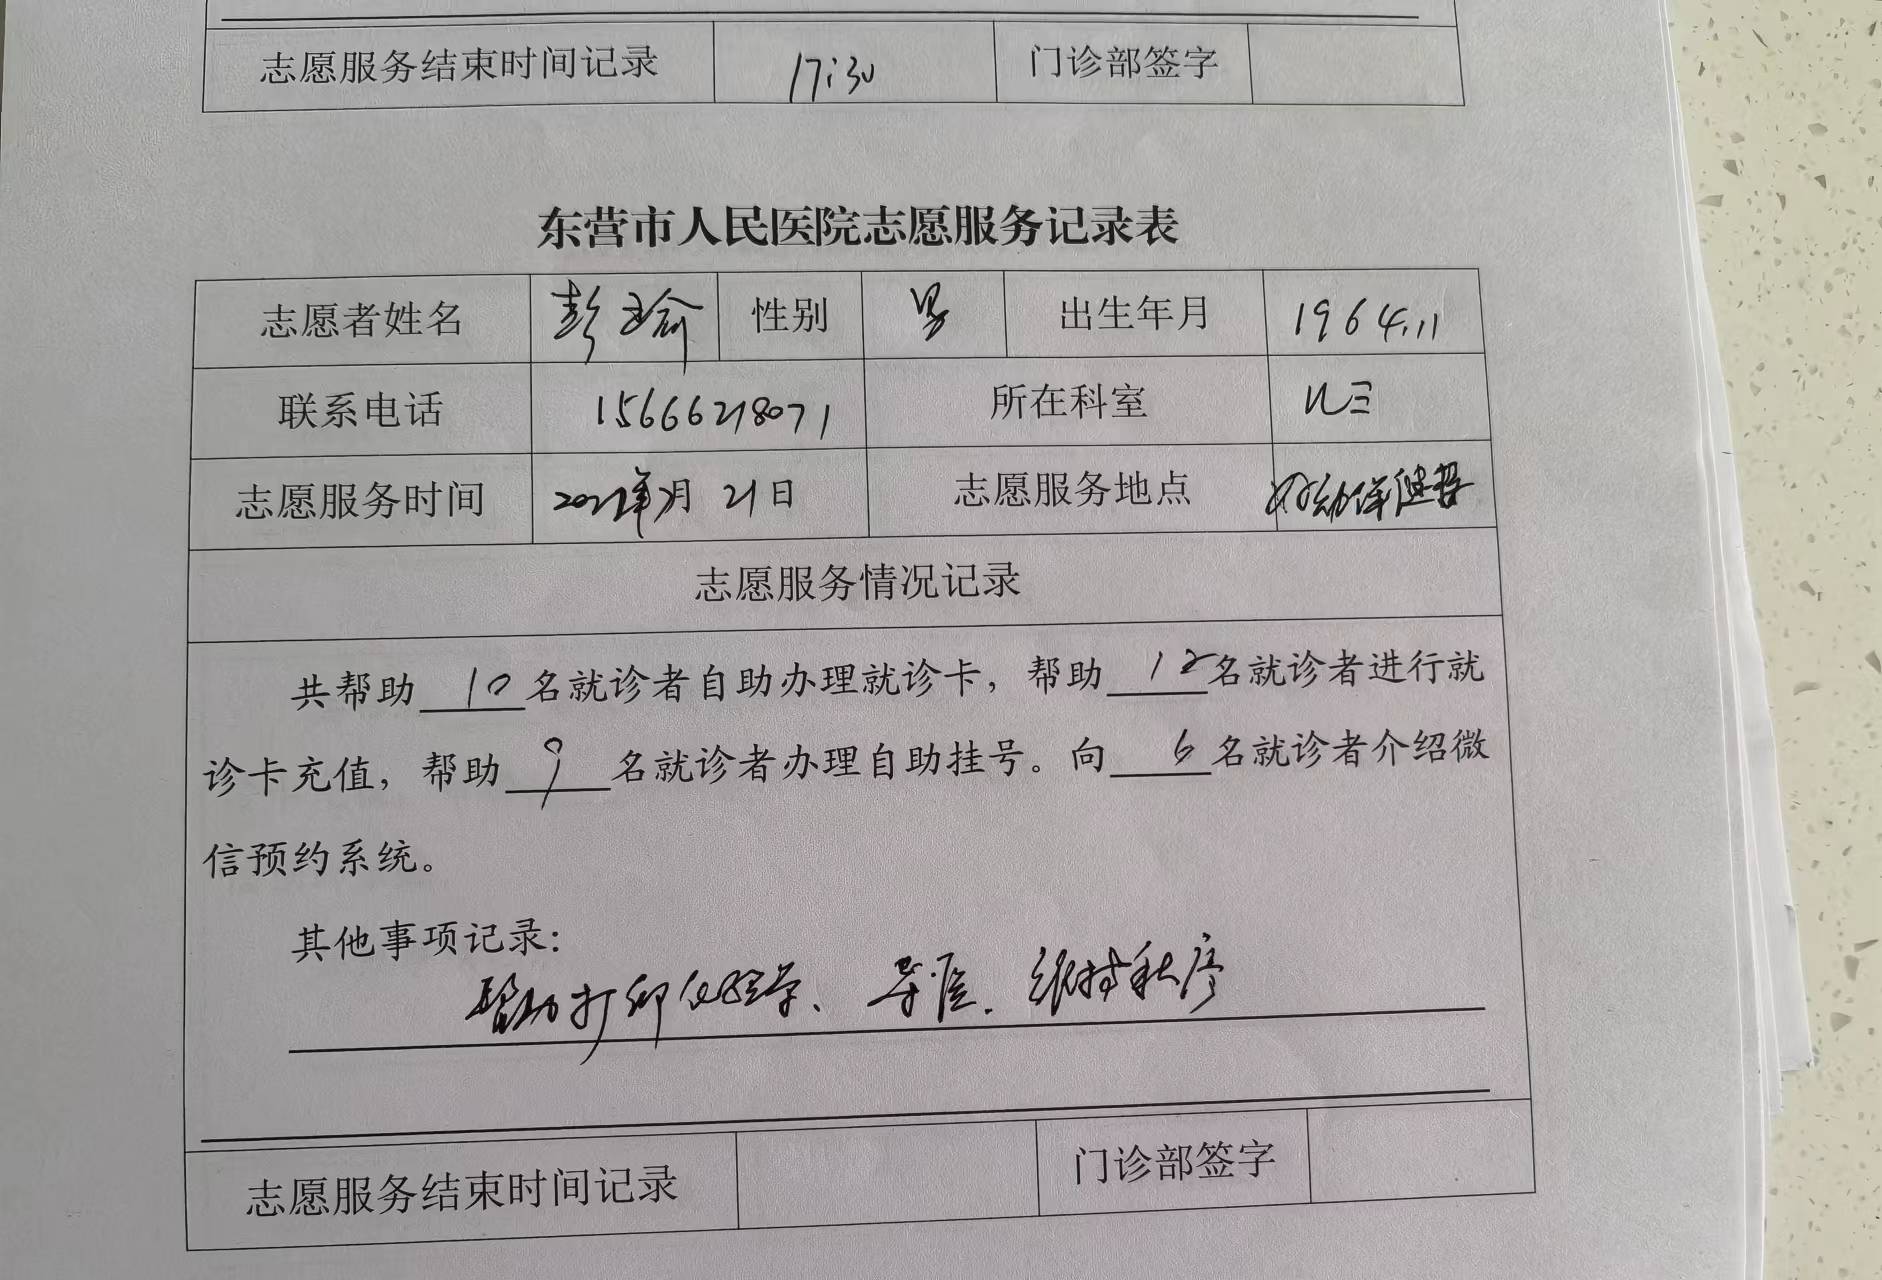 志愿服务结束时间记录 17:30 门诊部签字
东营市人民医院志愿服务记录表
志愿者姓名 彭玉俞 性别 男 出生年月 1964.11
联系电话 15666218071 所在科室 儿三
志愿服务时间 2022年2月21日 志愿服务地点 妇幼保健
志愿服务情况记录
共帮助 10 名就诊者自助办理就诊卡，帮助 12 名就诊者进行就
诊卡充值，帮助 9 名就诊者办理自助挂号。向 6 名就诊者介绍微
信预约系统。
其他事项记录：
帮助打印化验单、导医、维持秩序
志愿服务结束时间记录 门诊部签字